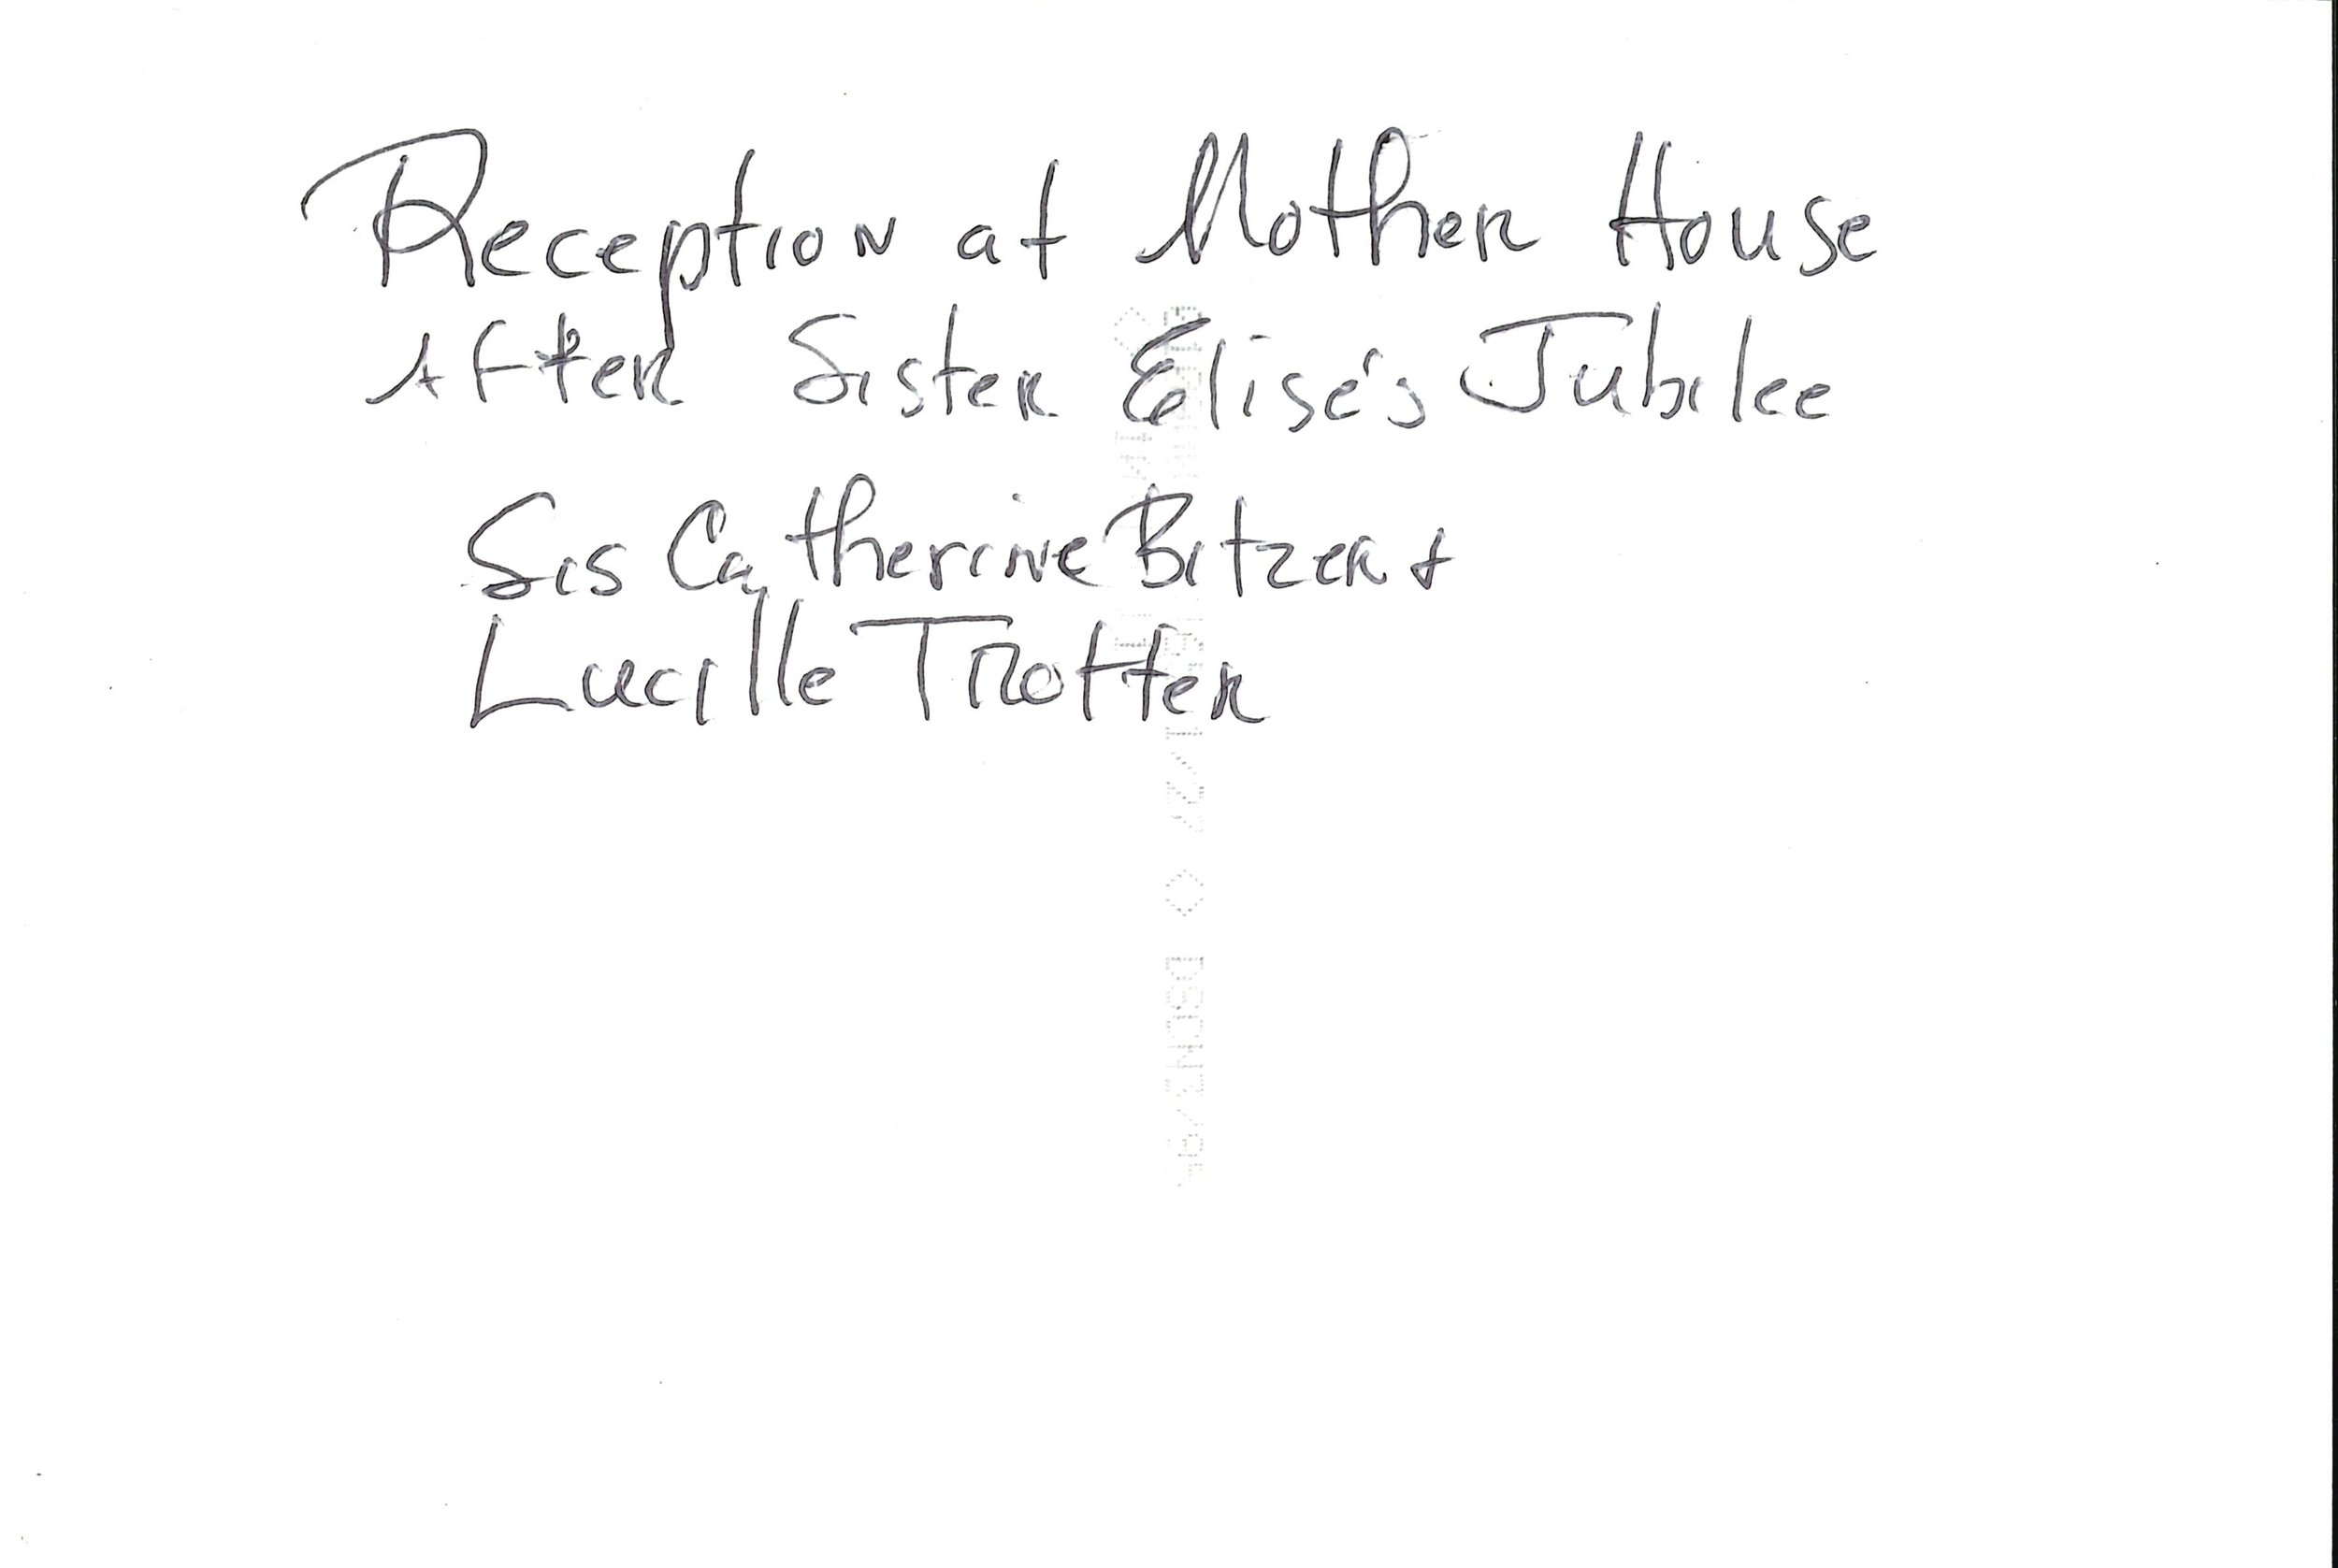 Reception at Mother House
After Sister Elise's Jubilee
Sis Catherine Bitzer +
Lucille Trotter